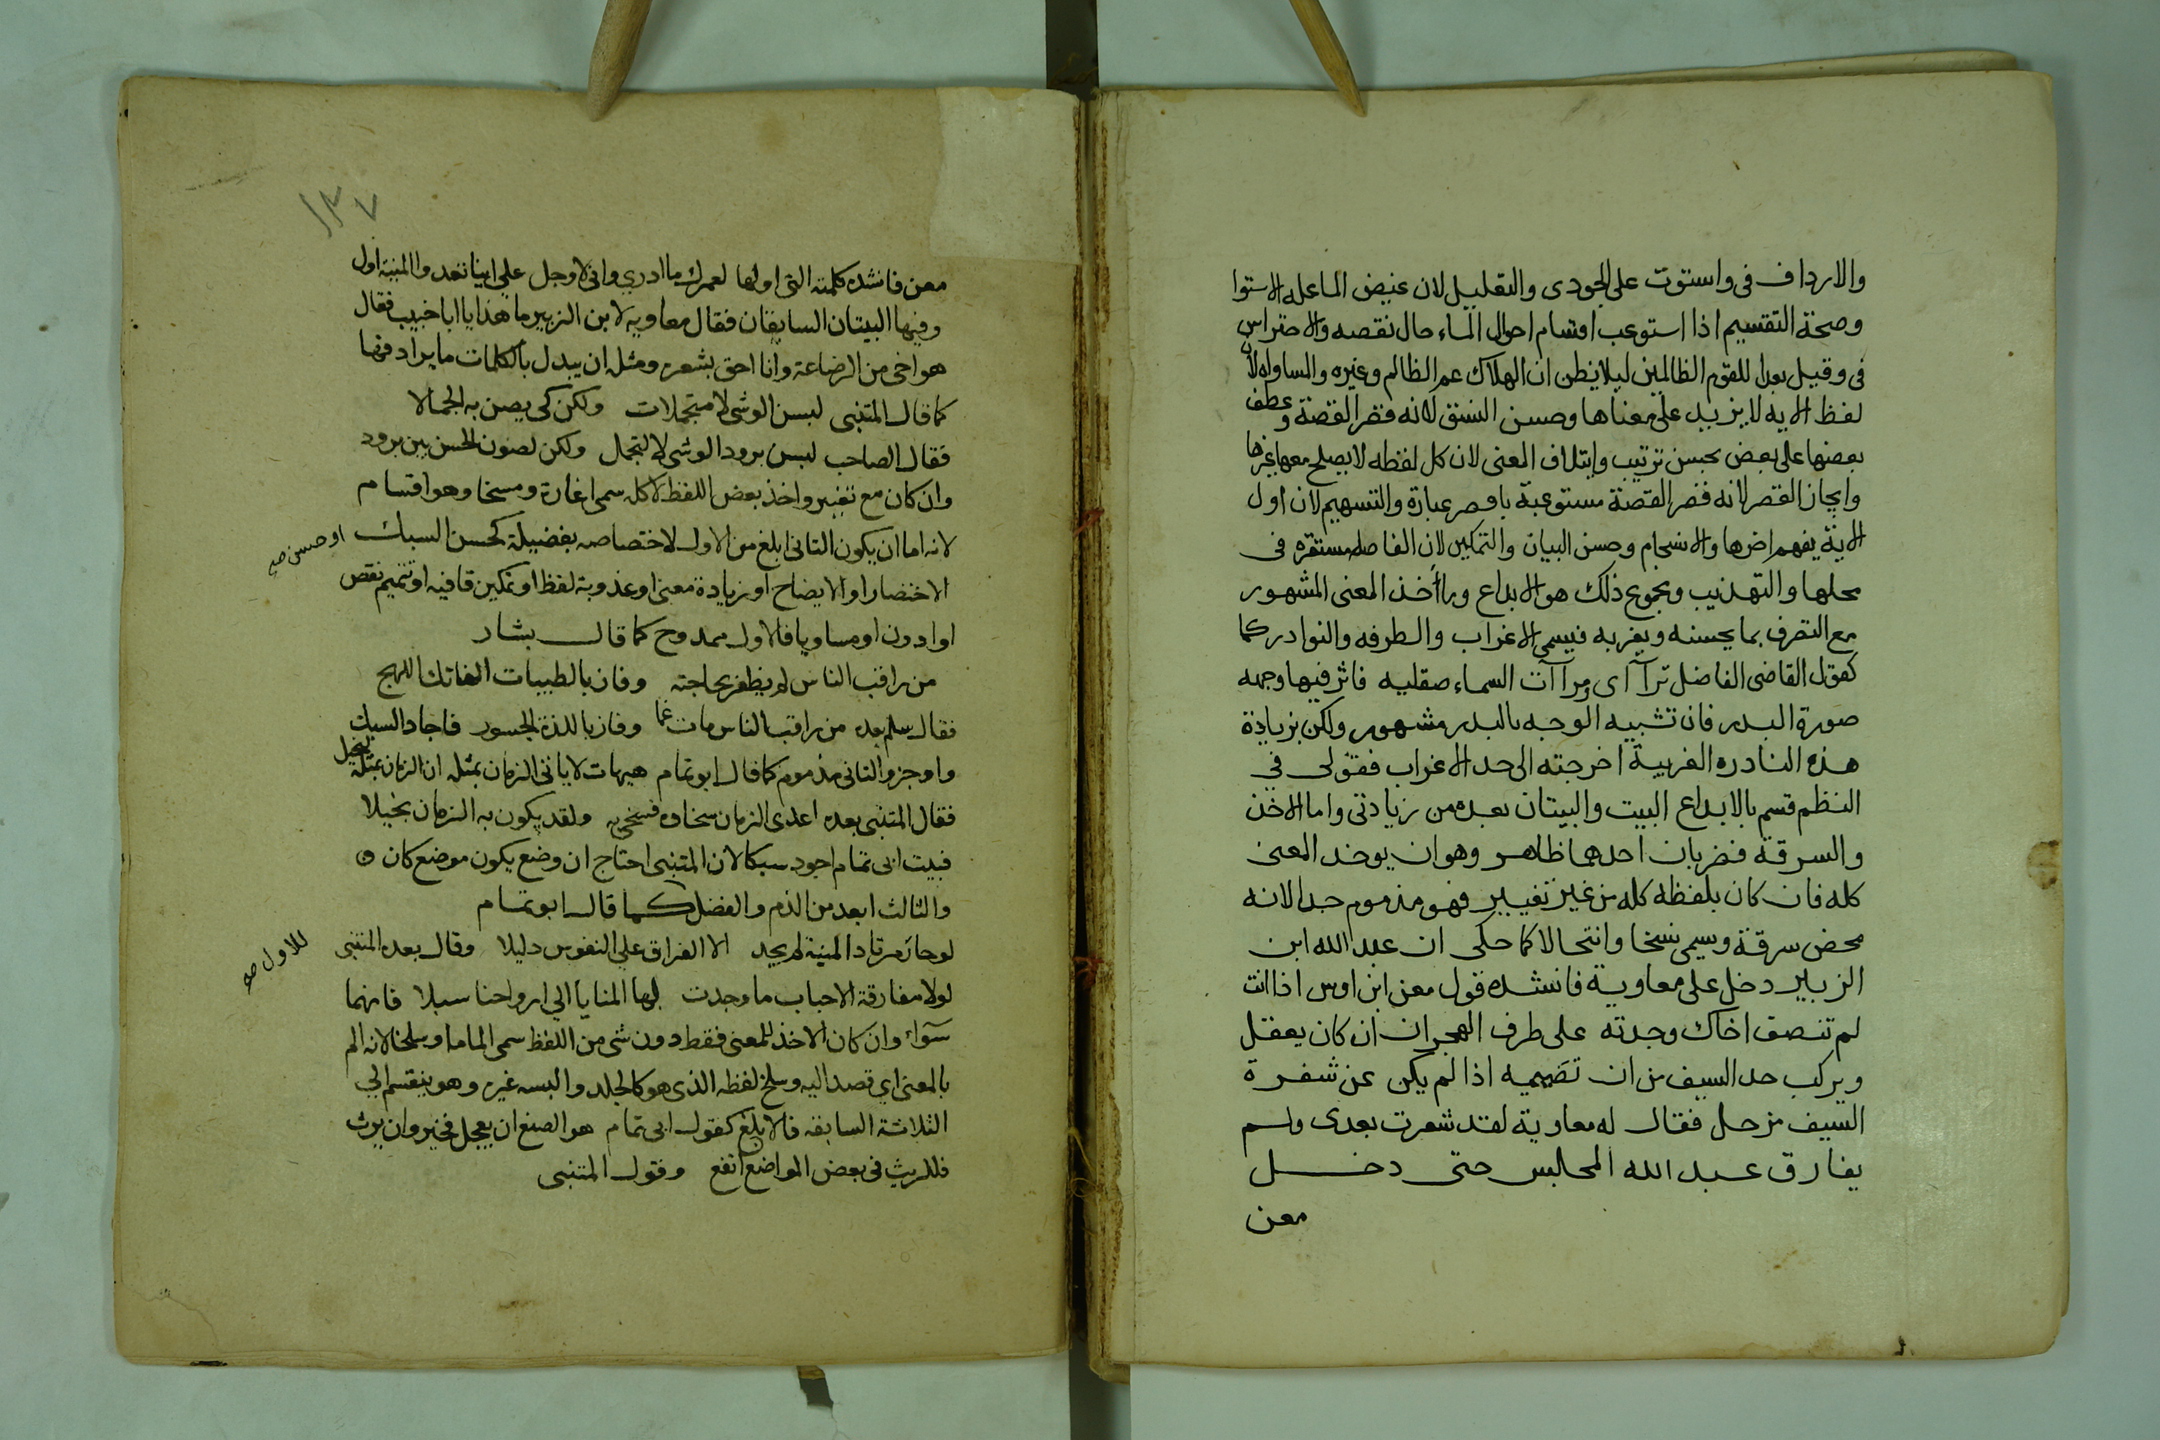 والارداف فى واستوت على الجودى والتعليل لان غيض الما عله الاستوا
وصحة التقسيم اذا استوعب اقسام احوال الماء حال نقصه والاحتراس
فى وقيل بعدا للقوم الظالمين ليلا يظن ان الهلاك عم الظالم وغيره والمساواه لان
لفظ الايه لا يزيد على معناها وحسن النسق لانه قص القصة وعطف
بعضها على بعض بحسن ترتيب وايتلاف المعنى لان كل لفظه لا يصلح معها غيرها
وايجاز القصر لانه قص القصة مستوعبة باقصر عبارة والتسهيم لان اول
الاية يفهم اخرها والانسجام وحسن البيان والتمكين لان الفاصله مستقره فى
محلها والتهذيب ومجموع ذلك هو الابداع وربما أخذ المعنى المشهور
مع التصرف بما يحسنه ويغربه فيسمى الاغراب والطرفه والنوادر كما
كقول القاضى الفاضل تراآى ومرآات السماء صقليه فاثر فيها وجهه
صورة البدر فان تشبيه الوجه بالبدر مشهور ولكن بزيادة
هذه النادره الغريبة اخرجته الى حد الاغراب فقولى فى
النظم قسم بالابداع البيت والبيتان بعده من زيادتى واما الاخذ
والسرقة فضربان احدهما ظاهر وهو ان يوخذ المعنى
كله فان كان بلفظه كله من غير تغيير فهو مذموم جدا لانه
محض سرقة ويسمى نسخا وانتحالا كما حكى ان عبد الله ابن
الزبير دخل على معاوية فانشده قول معن ابن اوس اذا انت
لم تنصف اخاك وجدته على طرف الهجران ان كان يعقل
ويركب حد السيف من ان تضيمه اذا لم يكن عن شفرة
السيف مزحل فقال له معاوية لقد شعرت بعدى ولم
يفارق عبد الله المجلس حتى دخل
معن
١٣٧
معن فانشده كلمته التى اولها لعمرك ما ادري وانى لاوجل على اينا تغدوا المنية اول
وفيها البيتان السابقان فقال معاويه لابن الزبير ما هذا يا ابا خبيب فقال
هو اخى من الرضاعة وانا احق بشعره ومثله ان يبدل بالكلمات ما يرادفها
كما قال المتنبى لبسن الوشى لا متجملات ولكن كى يصن به الجمالا
فقال الصاحب لبسن برود الوشى لا لتجمل ولكن لصون الحسن بين برود
وان كان مع تغيير واخذ بعض اللفظ لا كله سمى اغارة ومسخا وهو اقسام
لانه اما ان يكون الثانى ابلغ من الاول لاختصاصه بفضيلة كحسن السبك او حسن صح
الاختصار او الايضاح او زيادة معنى او عذوبة لفظ او تمكين قافيه او تتميم نقص
او ادون او مساويا فالاول ممدوح كما قال بشار
من راقب الناس لم يظفر بحاجته وفاز بالطيبات الفاتك اللهج
فقال سلم بعده من راقب الناس مات غما وفاز باللذة الجسور فاجاد السبك
واوجز والثانى مذموم كما قال ابو تمام هيهات لا ياتى الزمان بمثله ان الزمان بمثله لبخيل
فقال المتنبى بعده اعدى الزمان سخاؤه فسخى به ولقد يكون به الزمان بخيلا
فبيت ابى تمام اجود سبكا لان المتنبى احتاج ان وضع يكون موضع كان
والثالث ابعد من الذم والفضل كما قال ابو تمام
للاول صح
لو حار مرتاد المنية لم يجد الا الفراق على النفوس دليلا وقال بعده المتنبى
لولا مفارقة الاحباب ما وجدت لها المنايا الي ارواحنا سبلا فانهما
سوآء وان كان الاخذ للمعنى فقط دون شى من اللفظ سمى الماما وسلخا لانه الم
بالمعنى اي قصد اليه وسلخ لفظه الذى هو كالجلد والبسه غيره وهو ينقسم الي
الثلاثة السابقه فالابلغ كقول ابى تمام هو الصنع ان يعجل فخير وان يرث
فللريث فى بعض المواضع انفع وقول المتنبى